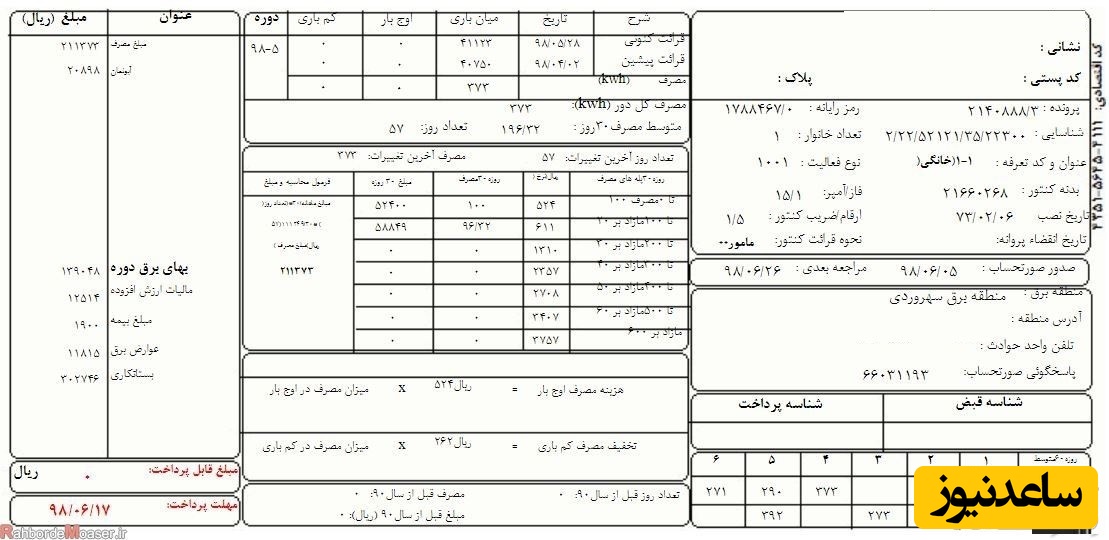 کد اقتصادی: ۴۱۱۱-۵۶۴۵-۴۳۵۱
نشانی :
کد پستی : پلاک :
پرونده : ۲۱۴۰۸۸۸/۳ رمز رایانه : ۱۷۸۸۴۶۷/۰
شناسایی : ۲/۲۲/۵۲۱۲۱/۳۵/۲۲۳۰۰ تعداد خانوار : ۱
عنوان و کد تعرفه : ۱-۱(خانگی( نوع فعالیت : ۱۰۰۱
بدنه کنتور : ۲۱۶۶۰۲۶۸ فاز/آمپر: ۱۵/۱
تاریخ نصب ۷۳/۰۲/۰۶ ارقام/ضریب کنتور : ۱/۵
تاریخ انقضاء پروانه: نحوه قرائت کنتور: مامور۰۰
صدور صورتحساب : ۹۸/۰۶/۰۵ مراجعه بعدی : ۹۸/۰۶/۲۶
منطقه برق : منطقه برق سهروردی
آدرس منطقه :
تلفن واحد حوادث :
پاسخگوئی صورتحساب: ۶۶۰۳۱۱۹۳
شناسه قبض شناسه پرداخت
روزه ۶۰متوسط ۱ ۲ ۳ ۴ ۵ ۶
۳۷۳ ۲۹۰ ۲۷۱
۲۷۳ ۳۹۲
شرح تاریخ میان باری اوج بار کم باری دوره
قرائت کنونی ۹۸/۰۵/۲۸ ۴۱۱۲۳ ۰ ۰ ۹۸-۵
قرائت پیشین ۹۸/۰۴/۰۲ ۴۰۷۵۰ ۰ ۰
مصرف (kwh) ۳۷۳ ۰ ۰
مصرف کل دور (kwh): ۳۷۳
متوسط مصرف۳۰روز : ۱۹۶/۳۲ تعداد روز: ۵۷
تعداد روز آخرین تغییرات: ۵۷ مصرف آخرین تغییرات: ۳۷۳
روزه ۳۰پله های مصرف ریال(نرخ( روزه ۳۰مصرف مبلغ ۳۰ روزه فرمول محاسبه و مبلغ
تا ۰مصرف ۱۰۰ ۵۲۴ ۱۰۰ ۵۲۴۰۰
تا ۱۰۰مازاد بر ۲۰ ۶۱۱ ۹۶/۳۲ ۵۸۸۴۹
تا ۲۰۰مازاد بر ۳۰ ۱۳۱۰ ۰ ۰
تا ۳۰۰مازاد بر ۴۰ ۲۳۵۷ ۰ ۰
تا ۴۰۰مازاد بر ۵۰ ۲۷۰۸ ۰ ۰
تا ۵۰۰مازاد بر ۶۰ ۳۴۰۷ ۰ ۰
مازاد بر ۶۰۰ ۳۷۵۷ ۰ ۰
ریال(مبلغ مصرف )
۲۱۱۳۷۳
هزینه مصرف اوج بار = ریال۵۲۴ x میزان مصرف در اوج بار
تخفیف مصرف کم باری = ریال۲۶۲ x میزان مصرف در کم باری
تعداد روز قبل از سال۹۰: ۰ مصرف قبل از سال۹۰: ۰
مبلغ قبل از سال۹۰ (ریال): ۰
عنوان مبلغ (ریال)
مبلغ مصرف ۲۱۱۳۷۳
آبونمان ۲۰۸۹۸
بهای برق دوره ۱۳۹۰۴۸
مالیات ارزش افزوده ۱۲۵۱۴
مبلغ بیمه ۱۹۰۰
عوارض برق ۱۱۸۱۵
بستانکاری ۳۰۲۷۴۶
مبلغ قابل پرداخت: ۰ ریال
مهلت پرداخت: ۹۸/۰۶/۱۷
ساعدنیوز
RahbordeMoaser.ir